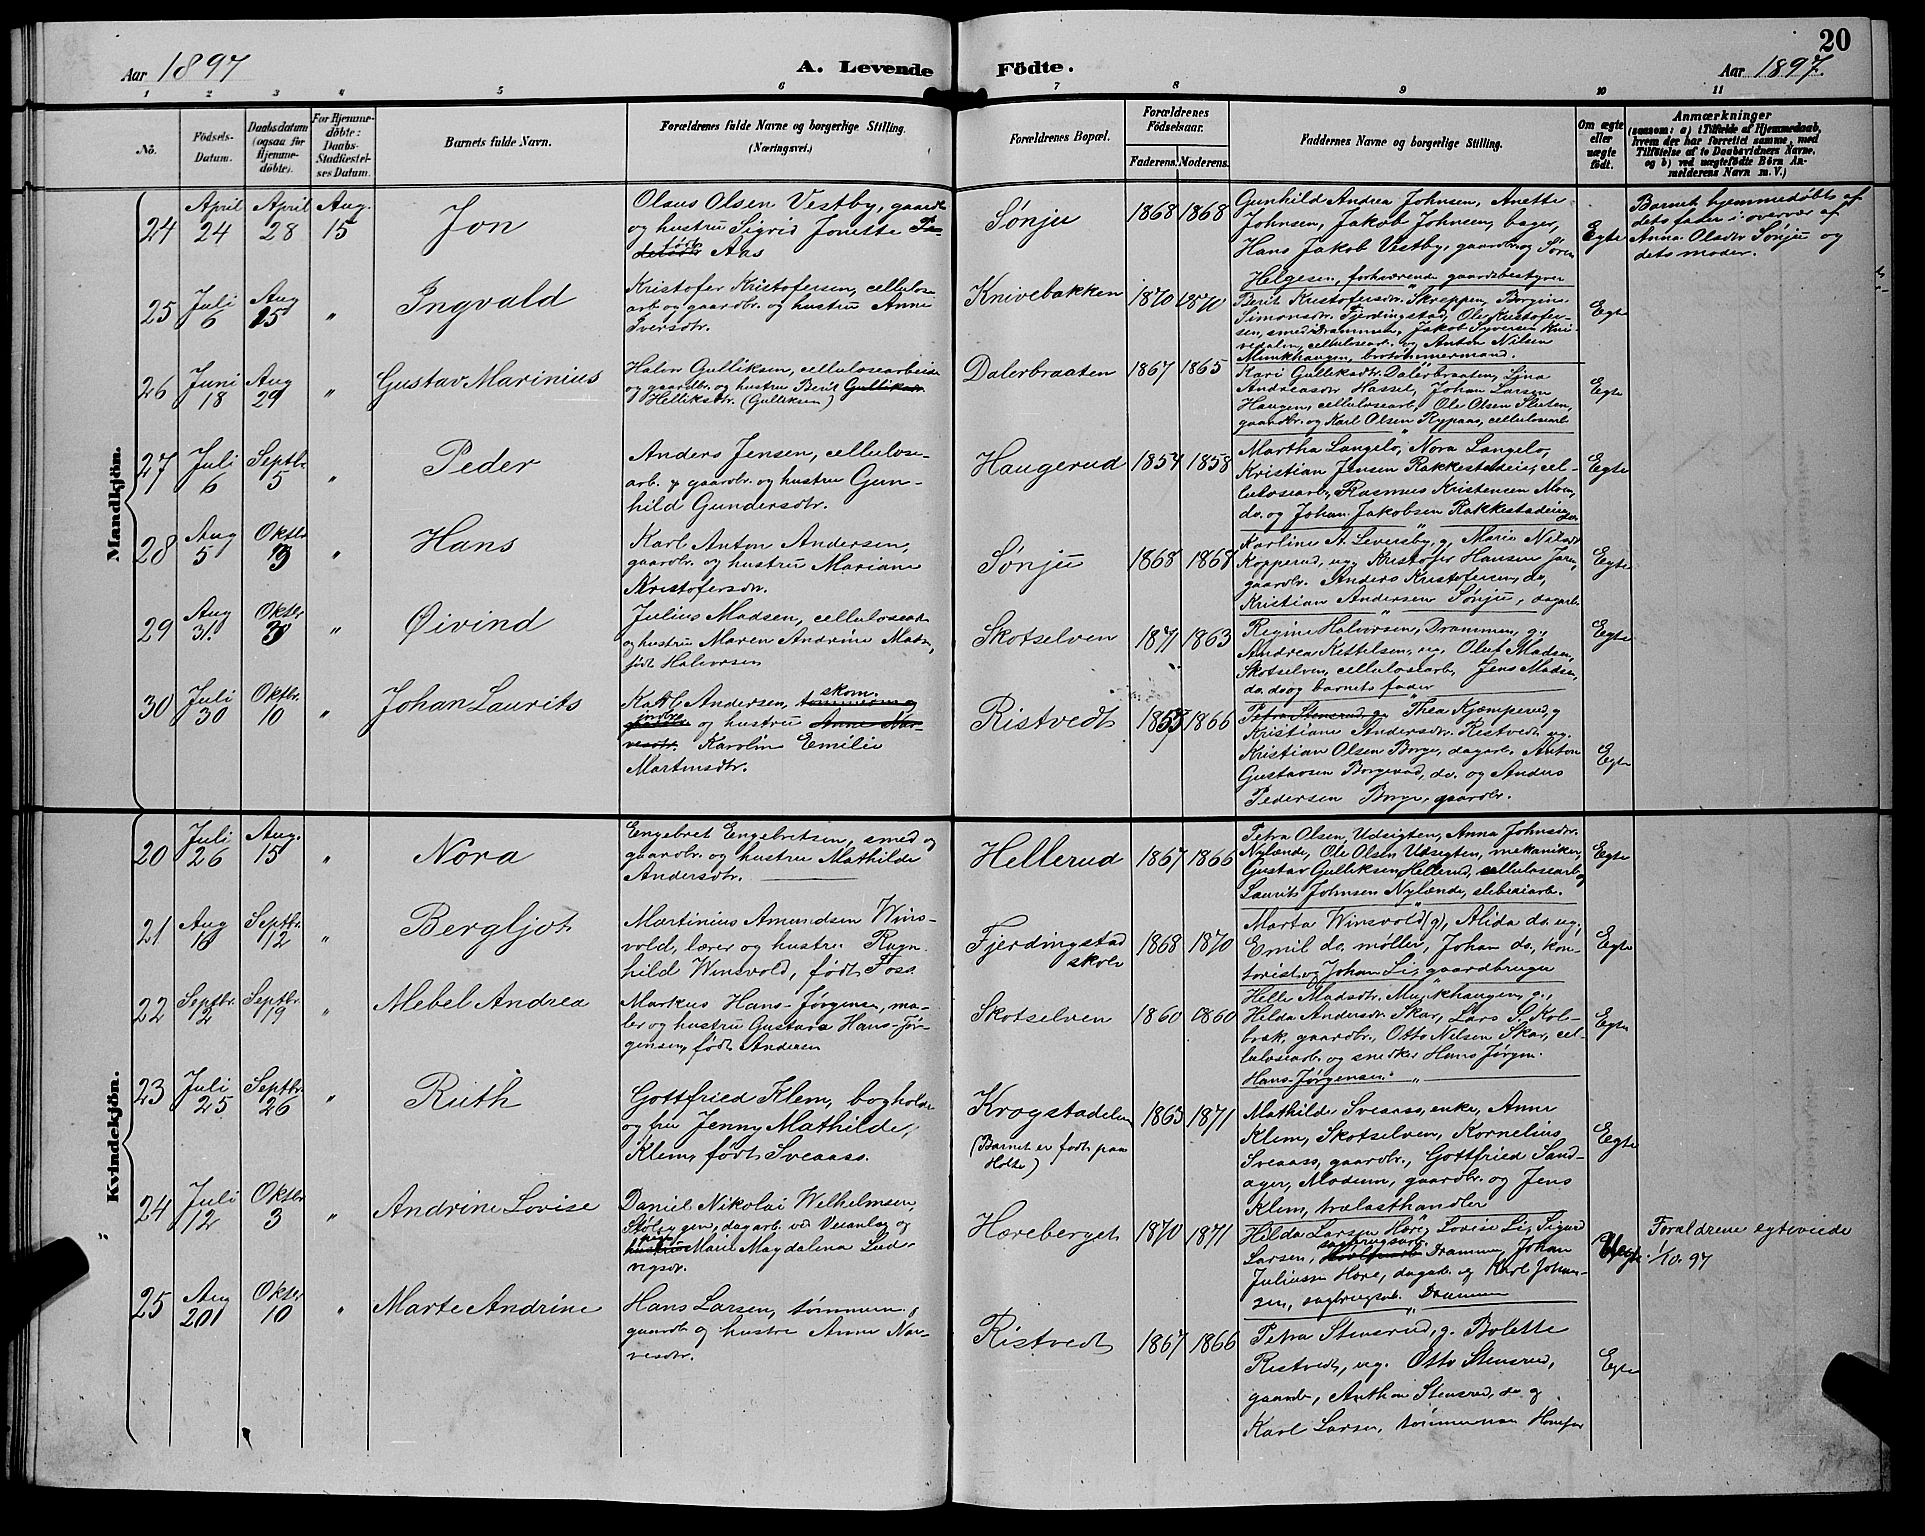 20
Aar 1897
A. Levende Födte.
Aar 1897.
1 2 3 4 5 6 7 8 9 10 11
No.
Födsels-
Datum.
Daabsdatum
(ogsaa for
Hjemme-
döbte).
For Hjemme-
döbte:
Daabs-
Stadfæstel-
ses Datum.
Barnets fulde Navn.
Forældrenes fulde Navne og borgerlige Stilling.
(Næringsvei.)
Forældrenes Bopæl.
Forældrenes
Födselsaar.
Faderens. Moderens.
Faddernes Navne og borgerlige Stilling.
Om ægte
eller
uægte
födt.
Anmærkninger
(saasom: a) i Tilfælde af Hjemmedaab,
hvem der har forrettet samme, med
Tilföielse af to Daabsvidners Navne,
og b) ved uægtefödte Börn An-
melderens Navn m. V.)
Mandkjön.
24
April
24
April
28
Aug.
15
Jon
Olaus Olsen Vestby, gaardb
og hustru Sigrid Jonette
født Aas
Sønju
1868 1868
Gunhild Andrea Johnsen, Anette
Johnsen, Jakob Johnsen, bager,
Hans Jakob Vestby, gaardbr og Søren
Helgesen, forhværende gaardsbestyrer
Egte
Barnet hjemmedøbt af
dets fader i overvær af
Anna Olsdtr Sønju og
dets moder.
25
Juli
6
Aug
15
"
Ingvald
Kristofer Kristofersen, cellulose
arb og gaardbr. og hustru Anne
Iversdtr.
Knivebakken
1870 1870
Berit Kristofersdtr. Skreppen, Borgine
Simonsdtr. Fjerdingstad, Ole Kristofer-
sen, smed Drammen, Jakob Syversen Kni
vedalen, cellulosearb. og Anton Nilsen
Munkhaugen, brotømmermand.
Egte
26
Juni
18
Aug
29
"
Gustav Marinius
Halvor Gulliksen, cellulosearbeide
og gaardbr. og hustru Berit Gulliksdr
Helliksdtr. (Gulliksen)
Dalerbraaten
1867 1865
Kari Gulliksdtr. Dalerbraaten, Lina
Andreasdtr Hassel, Johan Larsen
Haugen, cellulosearb, Ole Olsen Sletten,
gaardbr. og Karl Olsen Rypaas, cellulosearb
Egte
27
Juli
6
Septbr
5
"
Peder
Anders Jensen, cellulose-
arb. og gaardbr. og hustru Gun-
hild Gundersdtr.
Haugerud
1854 1858
Martha Langelo, Nora Langelo,
Kristian Jensen Rakkestadeie, cel-
lulosearb, Rasmus Kristensen Moen,
do. og Johan Jakobsen Rakkestadeie do
Egte
28
Aug
5
Oktbr
"
Hans
Karl Anton Andersen,
gaardbr. og hustru Mariane
Kristofersdtr.
Sønju
1868 1868
Karline A. Leversby, g, Marie Nilsdt
Kopperud, ug, Kristofer Hansen Jare,
gaardbr. Anders Kristofersen, do,
Kristian Andersen Sønju, dagarb.
Egte
29
Aug
31
Oktbr
3
"
Øivind
Julius Madsen, cellulosearb
og hustru Maren Andrine Mads.,
født Halvorsen
Skotselven
1871 1863
Regine Halvorsen, Drammen, g.,
Andrea Kittelsen, ug, Oluf Madsen,
Skotselven, cellulosearb. Jens Madsen,
do. do og barnets fader
Egte
30
Juli
30
Oktbr.
10
"
Johan Laurits
Karl Andersen, skom.
og hustru Anne Nar-
vesdtr. Karoline Emilie
Martinsdtr.
Ristvedt
1866
Petra Stensrud, g. Thea Kjæmperud, g
Kristiane Andersdtr. Restvedt ug.
Kristian Olsen Borge, dagarb. Anton
Gustavsen Borgerud, do. og Anders
Pedersen Borge, gaardbr.
Egte
Kvindekjön.
20
Juli
26
Aug.
15
"
Nora
Engebret Engebretsen, smed og
gaardbr. og hustru Mathilde
Andersdtr.
Hellerud
1867 1866
Petra Olsen, Udsigten, Anna Johnsdtr.
Nylænde, Ole Olsen Udsigten, mekaniker,
Gustav Gulliksen Hellerud, cellulosearb og
Laurits Johnsen Nylænde, sliberiarb.
Egte
21
Aug
16
Septbr.
12
"
Bergljot
Martinius Amundsen Wins-
vold, lærer og hustru Ragn
hild Winsvold, født Foss
Fjerdingstad
skole
1868 1870
Marta Winsvold (g), Alida do. ug.,
Emil do. møller, Johan do, kon-
torist og Johan Li, gaardbruger
Egte
22
Septbr.
2
Septbr
19
"
Mebel Andrea
Markus Hans-Jørgensen, ma-
ler og hustru Gustava Hans-Jør-
gensen, født Andersen
Skotselven
1860 1860
Helle Madsdtr. Munkhaugen, g.,
Helda Andersdtr Skar, Lars S. Kol-
brek, gaardbr., Otto Nilsen Skar, cel-
lulosearb og snedker Hans Jørgen
Hans-Jørgensen.
Egte
23
Juli
25
Septbr.
26
"
Ruth
Gottfried Klem, bogholder
og fru Jenny Mathilde
Klem, født Sveaass.
Krogstadelven
(Barnet er født paa
Holte)
1863 1871
Mathilde Sveaass, enke, Anne
Klem, Skotselven, Kornelius
Sveaass, gaardbr., Gottfried Sand-
ager, Modum, gaardbr. og Jens
Klem, trælasthandler
Egte
24
Juli
12
Oktbr
3
"
Andrine Lovise
Daniel Nikolai Welhelmsen,
dagarb. ved Veianlæg og
pige Marie Magdalena Lud-
vigsdr.
Høreberget
1870 1871
Hilda Larsen Høre, Lovise Li, Sigurd
Larsen, sagbrugsarb. Drammen, Johan
Juliussen Høre, dagarb. og Karl Johan-
sen, sagbrugsarb. Drammen
Uegte
Foraldrene egteviede
1/10. 97
25
Aug
20
Oktbr
10
"
Marte Andrine
Hans Larsen, tømmerm. og
gaardbr og hustru Anne Nar-
vesdtr.
Ristvedt
1867 1866
Petra Stensrud, g. Bolette
Restvedt, ug. Otto Stensrud,
gaardb, Anthon Stensrud, do og
Karl Larsen, tømmerman
Egte